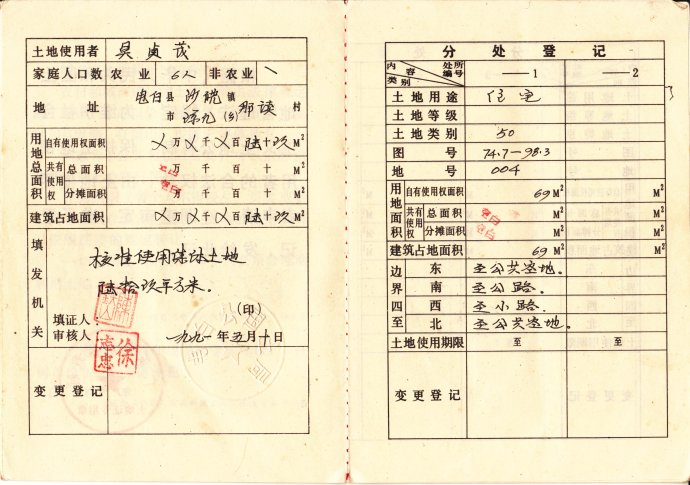 土地使用者 吴贞茂
家庭人口数 农业 6人 非农业 \
地 址 电白县 沙琅镇
市 (乡) 那谈村
用地总面积 自有使用权面积 乂万乂千乂百陆十玖M²
共有使用权 总面积 万 千 百 十 M²
空白
分摊面积 万 千 百 十 M²
空白
建筑占地面积 乂万乂千乂百陆十玖M²
填发机关
核准使用集体土地
陆拾玖平方米。
(印)
填证人:
审核人:
徐志忠
一九九一年五月十日
变更登记
分处登记
内容 处所编号 类别 ——1 ——2
土地用途 住宅
土地等级
土地类别 50
图号 74.7—98.3
地号 004
用地面积 自有使用权面积 69 M² M²
共有使用权 总面积 M² M²
空白
分摊面积 M² M²
空白
建筑占地面积 69 M² M²
边界四至 东 至公共空地。
南 至公路。
西 至小路.
北 至公共空地。
土地使用期限 至 至
变更登记